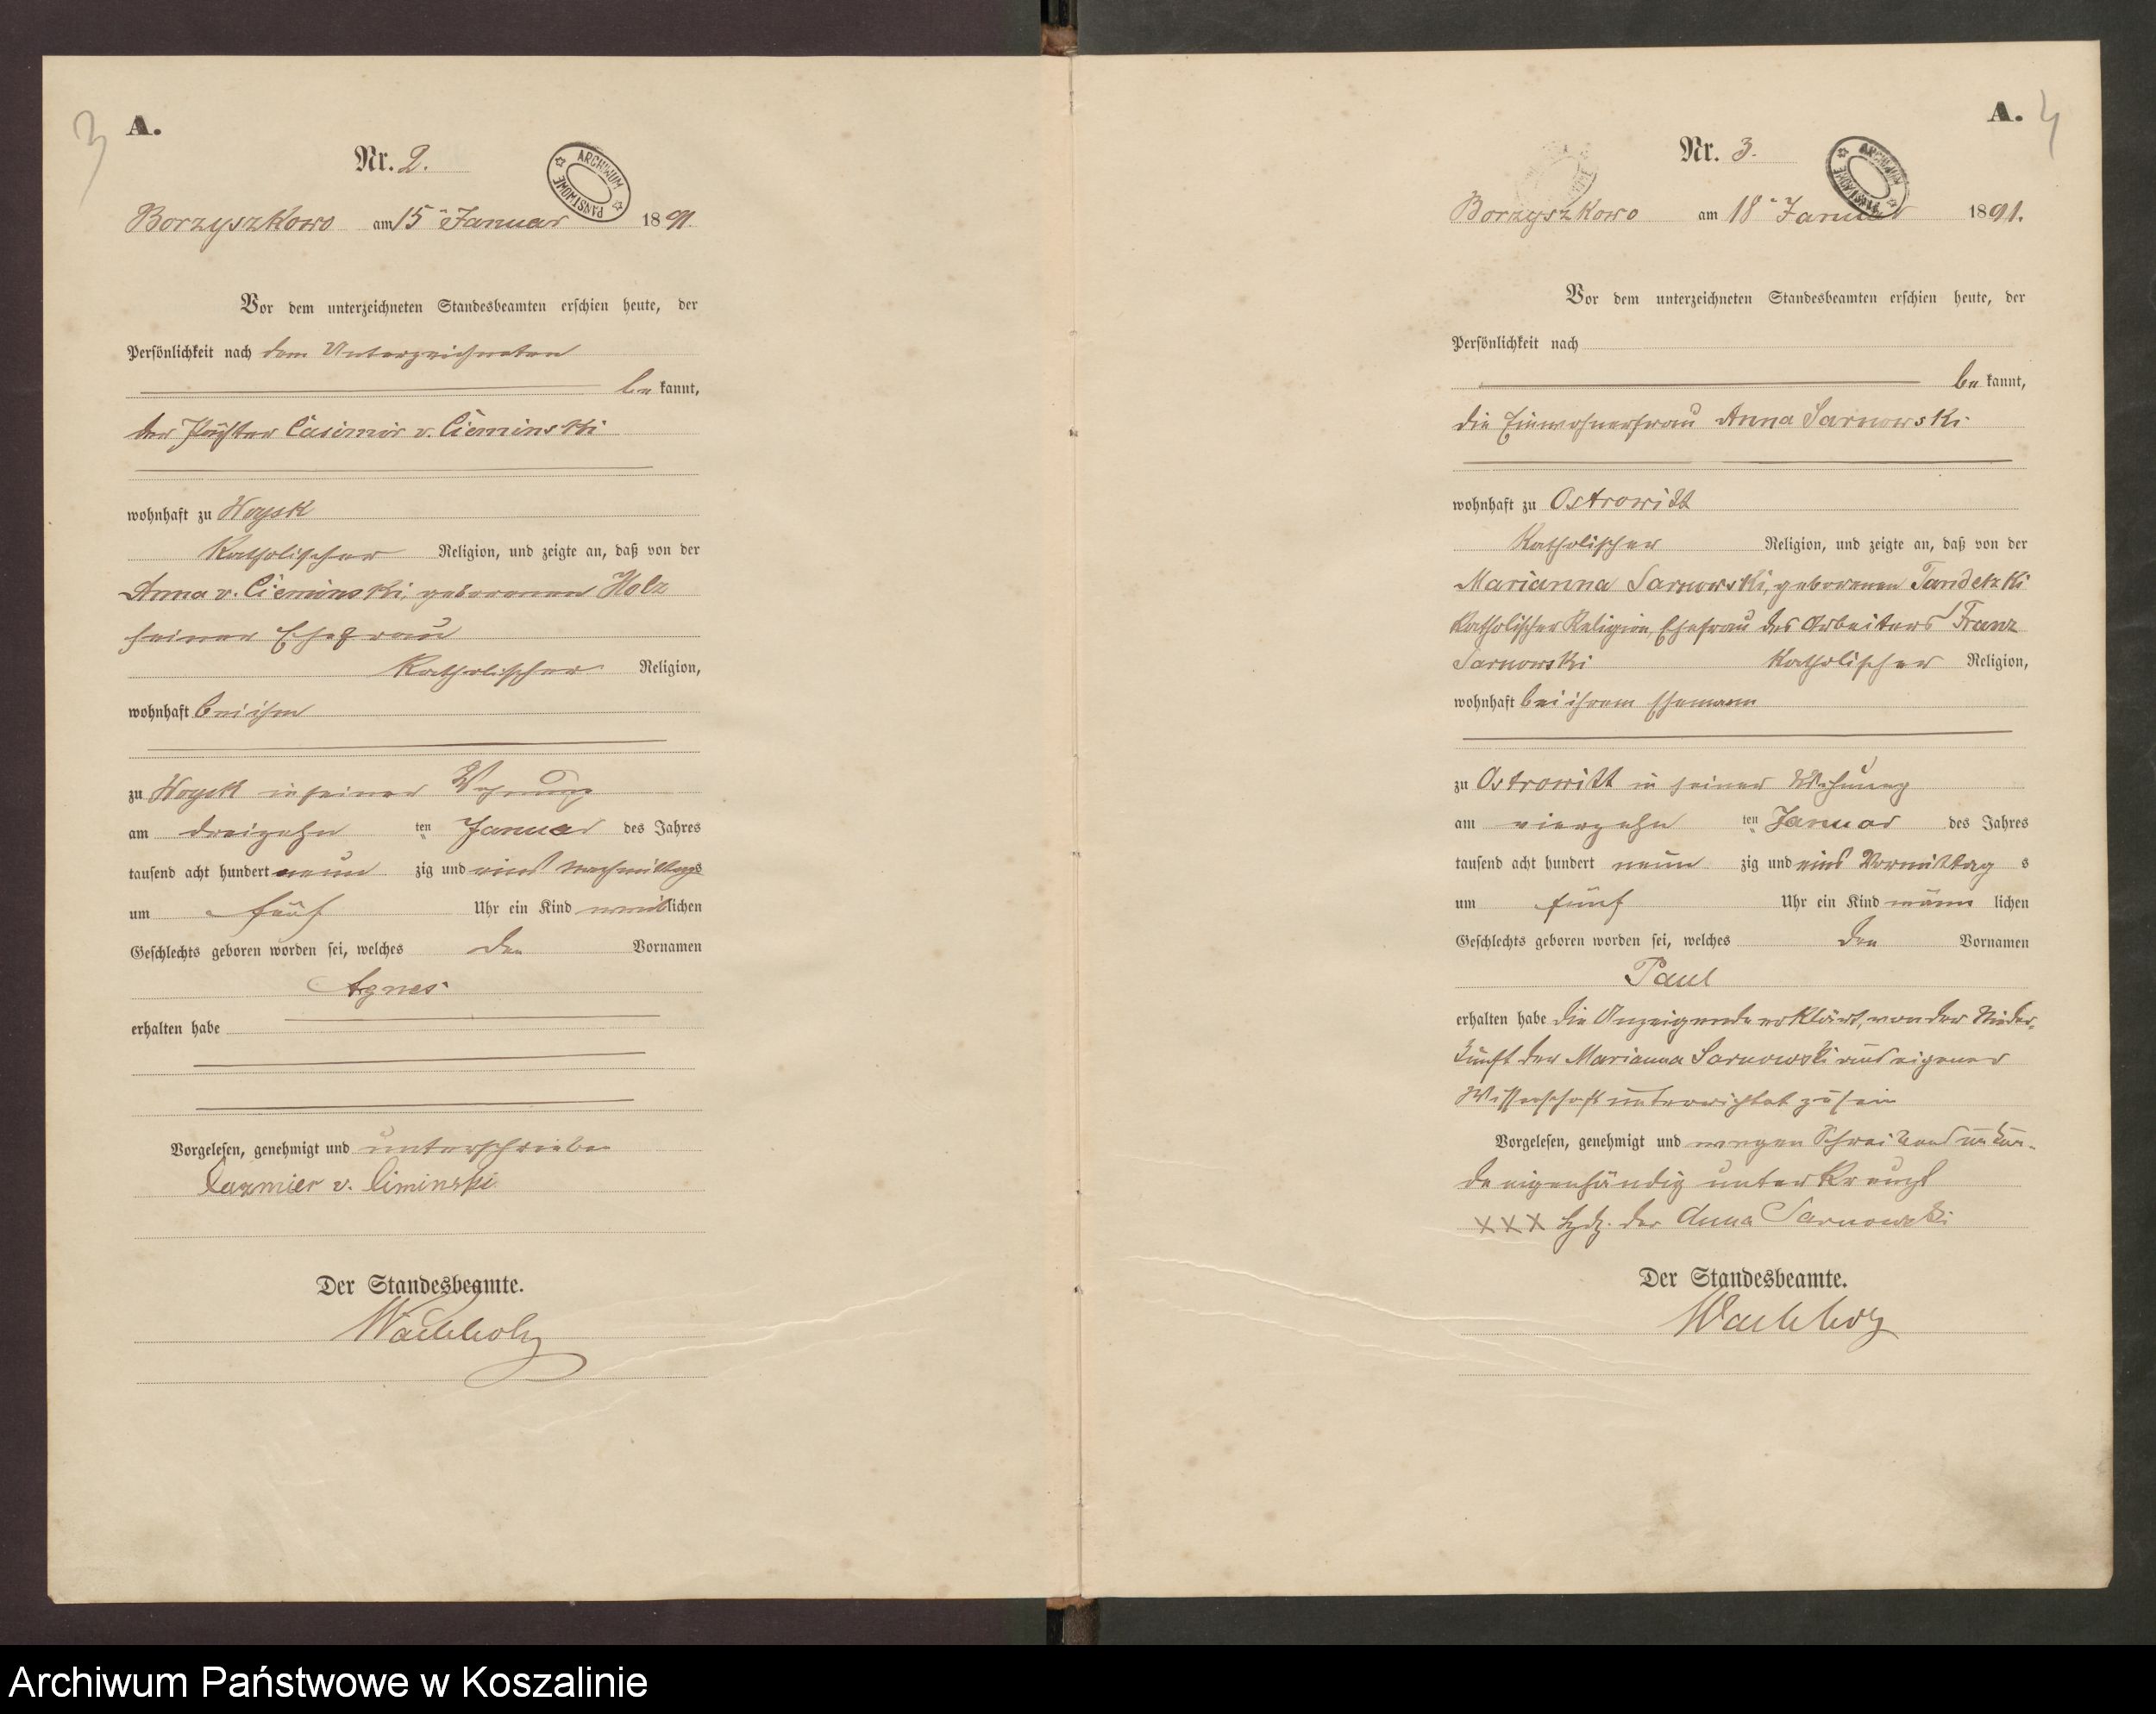 3
A.
Nr. 2.
ARCHIWUM PAŃSTWOWE
Borzyszkowo am 15ten Januar 1891.
Vor dem unterzeichneten Standesbeamten erschien heute, der
Persönlichkeit nach dem Unterzeichneten
be kannt,
der Pächter Casimir v. Cieminski
wohnhaft zu Woysk
Katholischer Religion, und zeigte an, daß von der
Anna v. Cieminski, geborenen Holz
seiner Ehefrau
Katholischer Religion,
wohnhaft bei ihm
zu Woysk in seiner Wohnung
am dreizehn ten Januar des Jahres
tausend acht hundert neun zig und eins Nachmittags
um fünf Uhr ein Kind weiblichen
Geschlechts geboren worden sei, welches den Vornamen
Agnes
erhalten habe
Vorgelesen, genehmigt und unterschrieben
v. Ciminski
Der Standesbeamte.
Wachholz
A. 4
Nr. 3.
ARCHIWUM PAŃSTWOWE
Borzyszkowo am 18ten Januar 1891.
Vor dem unterzeichneten Standesbeamten erschien heute, der
Persönlichkeit nach
be kannt,
die Einwohnerfrau Anna Sarnowski
wohnhaft zu Ostrowitt
Katholischer Religion, und zeigte an, daß von der
Marianna Sarnowski, geborenen Tandetzki
Katholischer Religion, Ehefrau des Arbeiters Franz
Sarnowski Katholischer Religion,
wohnhaft bei ihrem Ehemann
zu Ostrowitt in seiner Wohnung
am vierzehn ten Januar des Jahres
tausend acht hundert neun zig und eins Vormittag s
um fünf Uhr ein Kind männ lichen
Geschlechts geboren worden sei, welches den Vornamen
Paul
erhalten habe die Anzeigende erklärt, von der Nieder-
kunft der Marianna Sarnowski aus eigener
Wissenschaft unterrichtet zu sein
Vorgelesen, genehmigt und wegen Schreibensunkun-
de eigenhändig unterkreuzt
XXX Hdz. der Anna Sarnowski
Der Standesbeamte.
Wachholz
Archiwum Państwowe w Koszalinie